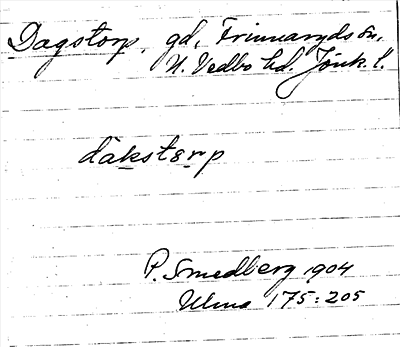 Dagstorp, gd, Frinnaryds sn,
N. Vedbo hd. Jönk. l.
dákstorp
P. Smedberg 1904
Ulma 175:205